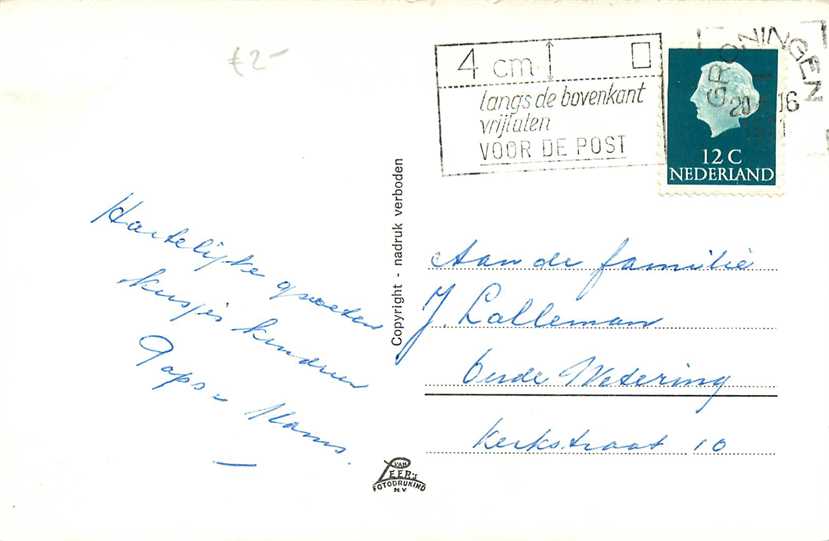 €2-
4 cm
langs de bovenkant
vrijlaten
VOOR DE POST
GRONINGEN
20 16
12 C
NEDERLAND
Hartelijke groeten
kusjes kinderen
Paps Mams.
Copyright - nadruk verboden
Aan de familie
J. Lalleman
Oude Wetering
Kerkstraat 10
VAN
LEER'S
FOTODRUKIND
N.V.